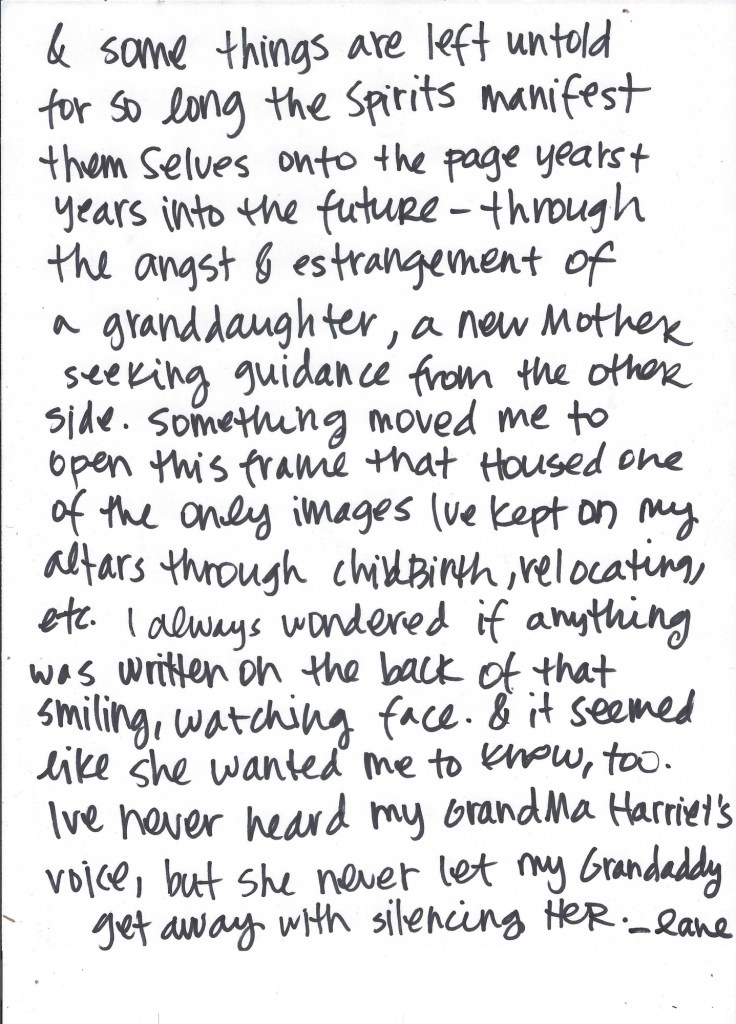 & some things are left untold
for so long the Spirits manifest
them selves onto the page years +
years into the future – through
the angst & estrangement of
a granddaughter, a new Mother
seeking guidance from the other
side. Something moved me to
open this frame that Housed one
of the only images Ive kept on my
altars through childBirth, relocating,
etc. I always wondered if anything
was written on the back of that
smiling, watching face. & it seemed
like she wanted me to know, too.
Ive never heard my GrandMa Harriet's
voice, but she never let my Grandaddy
get away with silencing HER. – lane